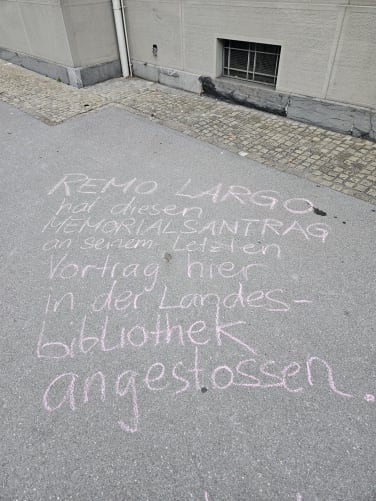 REMO LARGO
hat diesen
MEMORIALSANTRAG
an seinem letzten
Vortrag hier
in der Landes-
bibliothek
angestossen.